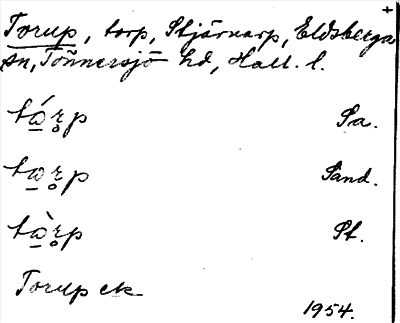 Torup, torp, Stjärnarp, Eldsberga
sn, Tönnersjö hd, Hall. l.
tá̱r̥p Sa.
ta̱r̥p Sand.
tà̱r̥p St.
Torup ek
1954.